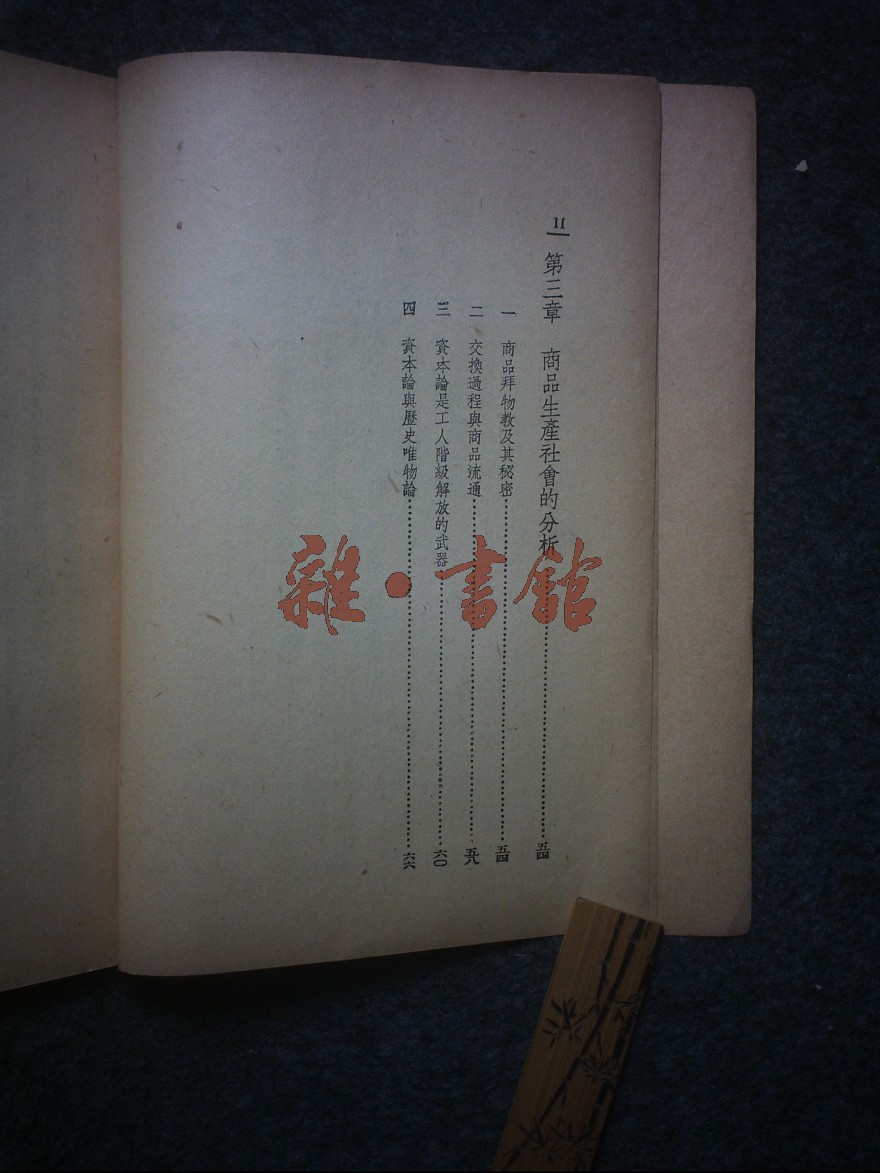 11
第三章 商品生產社會的分析……五四
一 商品拜物教及其秘密……五四
二 交換過程與商品流通……五八
三 資本論是工人階級解放的武器……六〇
四 資本論與歷史唯物論……六六
雜·書館